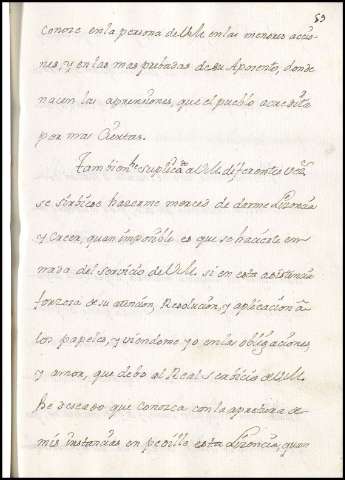 53
conoze en la persona de V.M. en las menores accio
nes, y en las mas pribadas de su Aposento, donde
nacen las aprensiones, que el pueblo acredita
por mas Ciertas.
Tambien he suplicado a V.M. diferentes vezes
se sirbiese hacerme merced de darme Lizencia
y Creer, quan imposible es que se hacierte en
nada del servicio de V.M. si en esta asistencia
forzosa de su atencion, Resolucion, y aplicacion a
los papeles, y viendome yo en las obligaciones
y amor, que debo al Real Serbicio de V.M.
he deseado que conozca con la apretura de
mis instancias en pedille esta Lizencia, quan